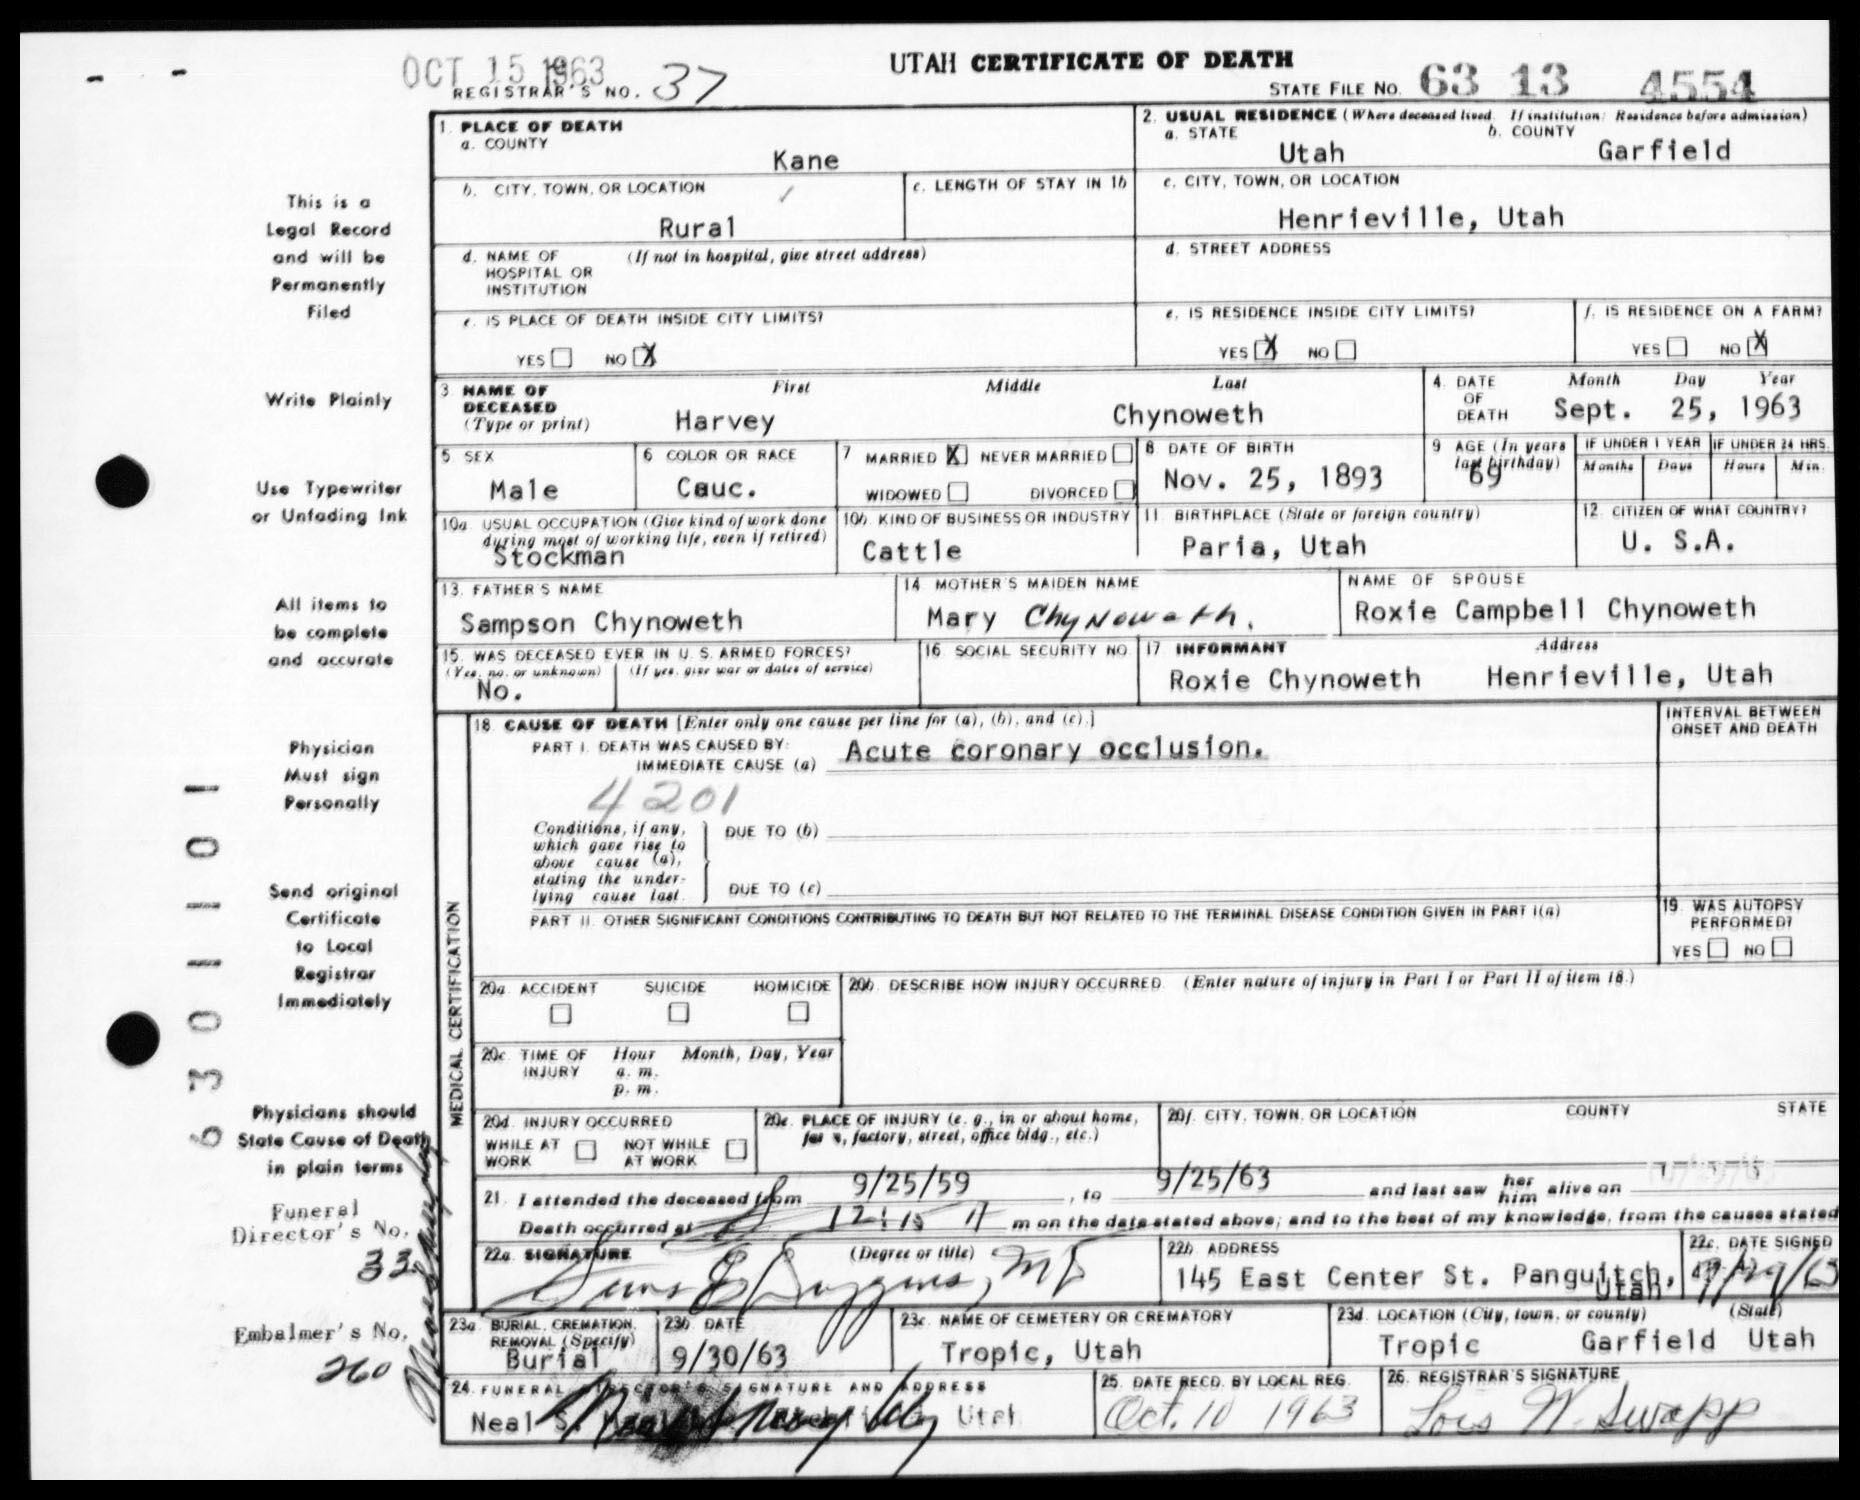 OCT 15 1963
UTAH CERTIFICATE OF DEATH
REGISTRAR'S NO. 37
STATE FILE NO. 63 13 4554
This is a
Legal Record
and will be
Permanently
Filed
Write Plainly
Use Typewriter
or Unfading Ink
All items to
be complete
and accurate
Physician
Must sign
Personally
Send original
Certificate
to Local
Registrar
Immediately
Physicians should
State Cause of Death
in plain terms
Funeral
Director's No.
33
Embalmer's No.
260
1. PLACE OF DEATH
a. COUNTY
Kane
2. USUAL RESIDENCE (Where deceased lived. If institution: Residence before admission)
a. STATE
Utah
b. COUNTY
Garfield
b. CITY, TOWN, OR LOCATION
Rural
c. LENGTH OF STAY IN 1b
c. CITY, TOWN, OR LOCATION
Henrieville, Utah
d. NAME OF HOSPITAL OR INSTITUTION
(If not in hospital, give street address)
d. STREET ADDRESS
e. IS PLACE OF DEATH INSIDE CITY LIMITS?
YES NO X
e. IS RESIDENCE INSIDE CITY LIMITS?
YES X NO
f. IS RESIDENCE ON A FARM?
YES NO X
3. NAME OF DECEASED (Type or print)
First Middle Last
Harvey Chynoweth
4. DATE OF DEATH
Month Day Year
Sept. 25, 1963
5. SEX
Male
6. COLOR OR RACE
Cauc.
7. MARRIED X NEVER MARRIED
WIDOWED DIVORCED
8. DATE OF BIRTH
Nov. 25, 1893
9. AGE (In years last birthday)
69
IF UNDER 1 YEAR
Months Days
IF UNDER 24 HRS.
Hours Min.
10a. USUAL OCCUPATION (Give kind of work done during most of working life, even if retired)
Stockman
10b. KIND OF BUSINESS OR INDUSTRY
Cattle
11. BIRTHPLACE (State or foreign country)
Paria, Utah
12. CITIZEN OF WHAT COUNTRY?
U. S.A.
13. FATHER'S NAME
Sampson Chynoweth
14. MOTHER'S MAIDEN NAME
Mary Chynoweth.
NAME OF SPOUSE
Roxie Campbell Chynoweth
15. WAS DECEASED EVER IN U. S. ARMED FORCES?
(Yes, no, or unknown) (If yes, give war or dates of service)
No.
16. SOCIAL SECURITY NO.
17. INFORMANT Address
Roxie Chynoweth Henrieville, Utah
MEDICAL CERTIFICATION
18. CAUSE OF DEATH [Enter only one cause per line for (a), (b), and (c).]
INTERVAL BETWEEN ONSET AND DEATH
PART I. DEATH WAS CAUSED BY:
IMMEDIATE CAUSE (a) Acute coronary occlusion.
4201
Conditions, if any, which gave rise to above cause (a), stating the underlying cause last.
DUE TO (b)
DUE TO (c)
PART II. OTHER SIGNIFICANT CONDITIONS CONTRIBUTING TO DEATH BUT NOT RELATED TO THE TERMINAL DISEASE CONDITION GIVEN IN PART I(a)
19. WAS AUTOPSY PERFORMED?
YES NO
20a. ACCIDENT SUICIDE HOMICIDE
20b. DESCRIBE HOW INJURY OCCURRED. (Enter nature of injury in Part I or Part II of item 18.)
20c. TIME OF INJURY
Hour Month, Day, Year
a. m.
p. m.
20d. INJURY OCCURRED
WHILE AT WORK NOT WHILE AT WORK
20e. PLACE OF INJURY (e. g., in or about home, factory, street, office bldg., etc.)
20f. CITY, TOWN, OR LOCATION COUNTY STATE
21. I attended the deceased from 9/25/59, to 9/25/63 and last saw her him alive on
Death occurred at 12:15 m on the date stated above; and to the best of my knowledge, from the causes stated
22a. SIGNATURE (Degree or title)
Duggins, MD
22b. ADDRESS
145 East Center St. Panguitch, Utah
22c. DATE SIGNED
9/29/63
23a. BURIAL, CREMATION, REMOVAL (Specify)
Burial
23b. DATE
9/30/63
23c. NAME OF CEMETERY OR CREMATORY
Tropic, Utah
23d. LOCATION (City, town, or county) (State)
Tropic Garfield Utah
24. FUNERAL DIRECTOR'S SIGNATURE AND ADDRESS
Neal S. Utah
25. DATE RECD. BY LOCAL REG.
Oct. 10 1963
26. REGISTRAR'S SIGNATURE
Lois W. Swapp